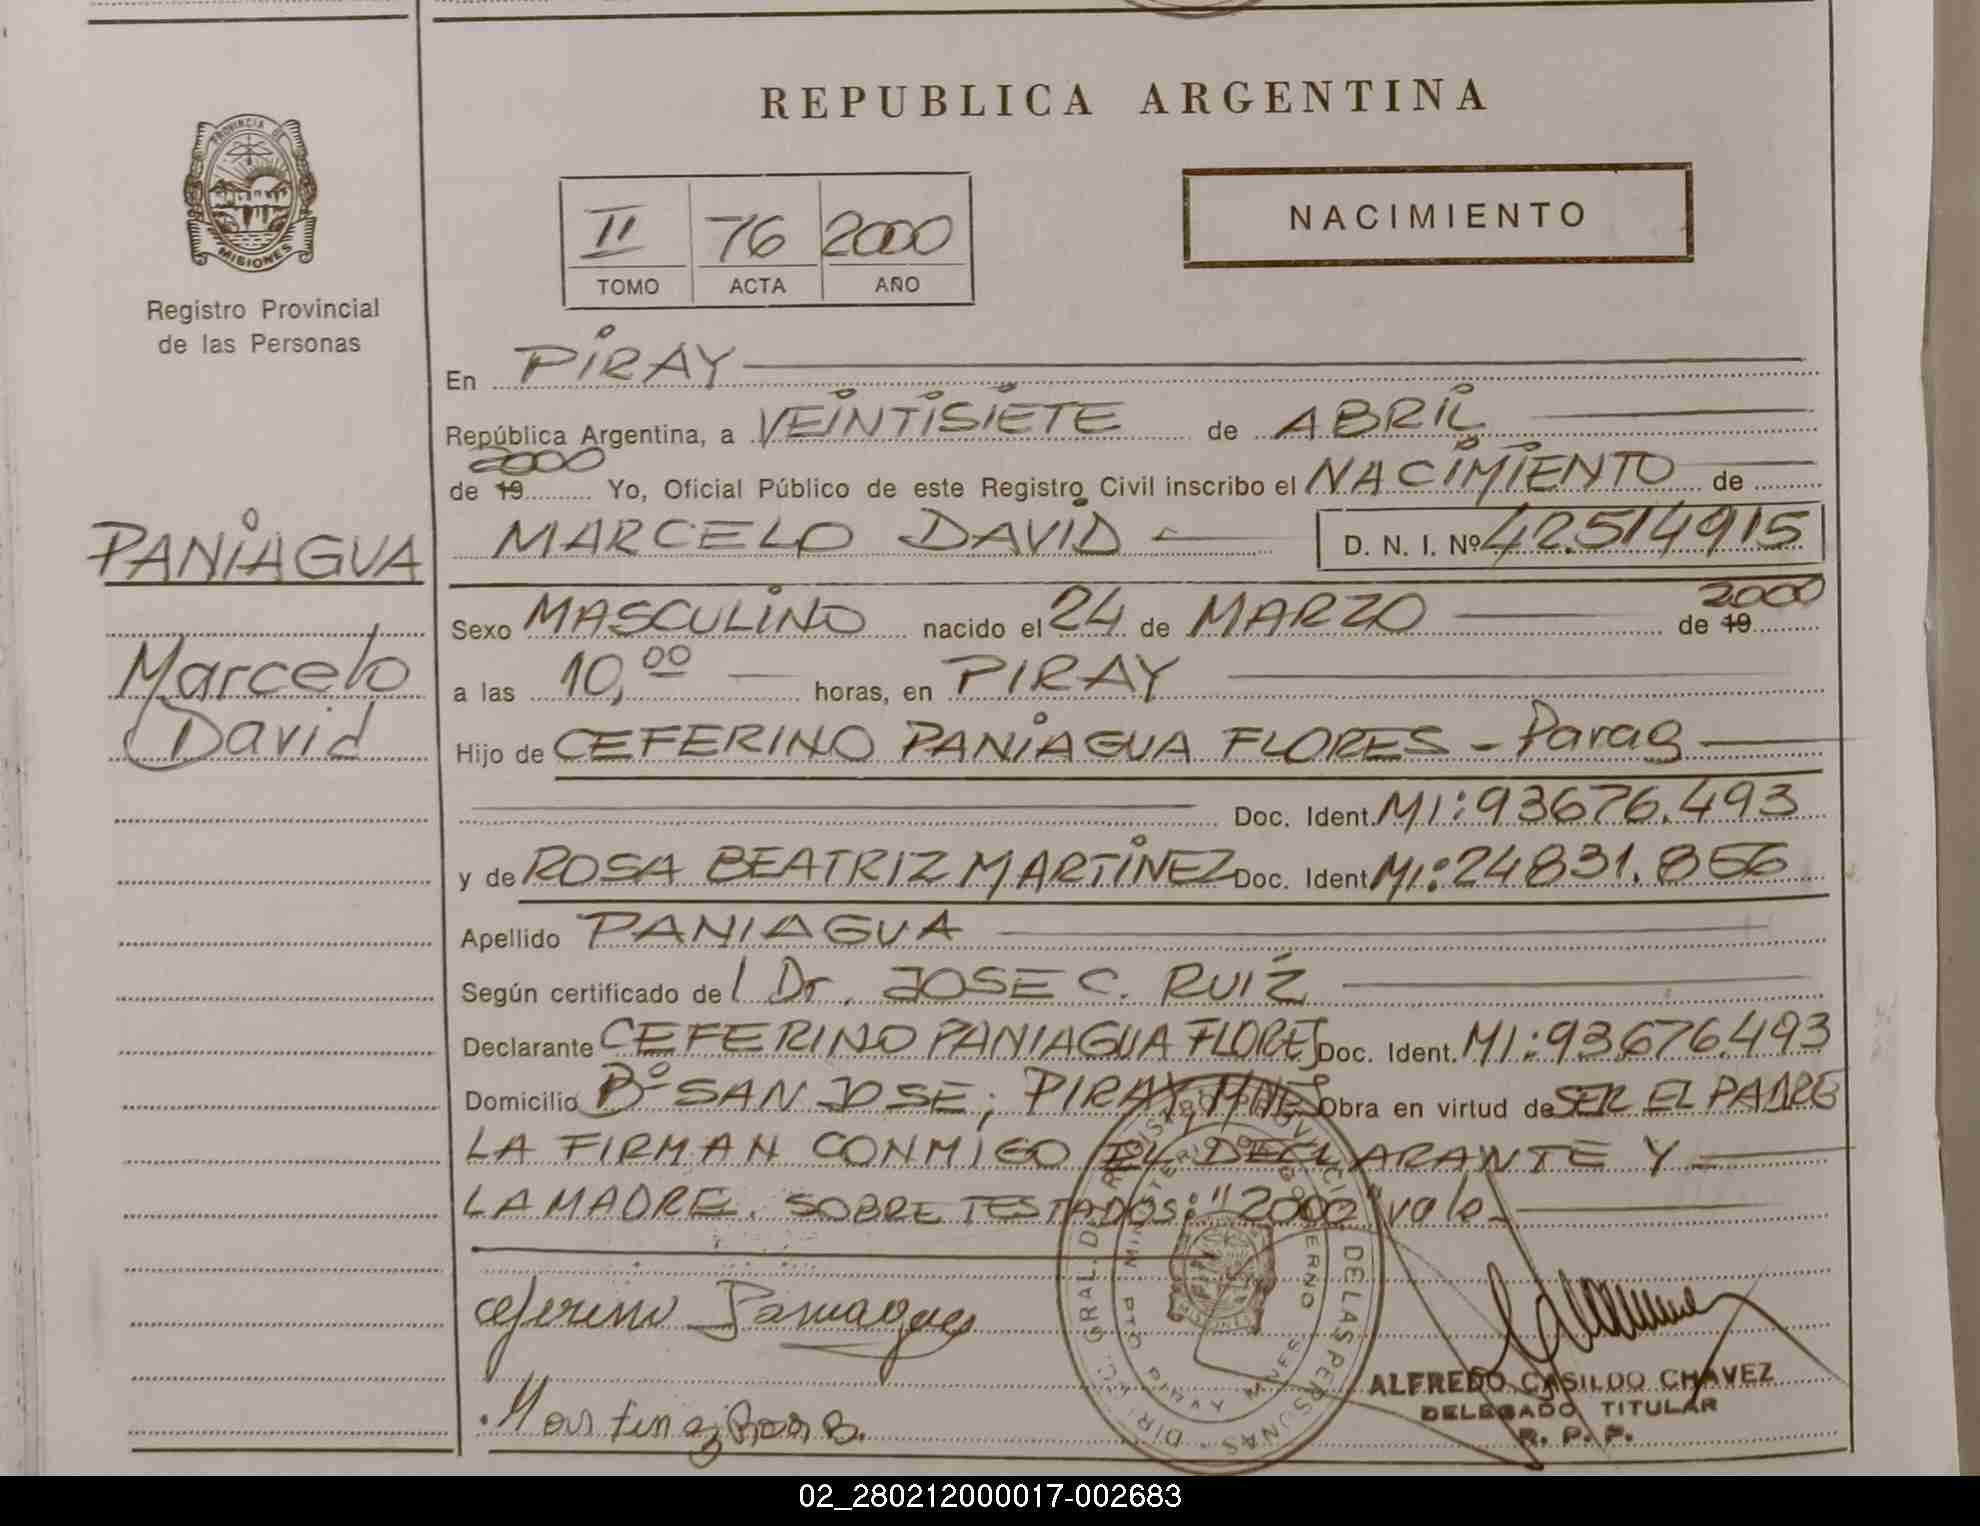 REPUBLICA ARGENTINA
PROVINCIA DE MISIONES
Registro Provincial
de las Personas
II 76 2000
TOMO ACTA AÑO
NACIMIENTO
En PIRAY
República Argentina, a VEINTISIETE de ABRIL
de 19 2000 Yo, Oficial Público de este Registro Civil inscribo el NACIMIENTO de
MARCELO DAVID D. N. I. Nº 42.514915
PANIAGUA
Marcelo
David
Sexo MASCULINO nacido el 24 de MARZO de 19 2000
a las 10,00 horas, en PIRAY
Hijo de CEFERINO PANIAGUA FLORES - Parag
Doc. Ident. MI: 93676.493
y de ROSA BEATRIZ MARTINEZ Doc. Ident. MI: 24831.856
Apellido PANIAGUA
Según certificado del Dr. JOSE C. RUIZ
Declarante CEFERINO PANIAGUA FLORES Doc. Ident. MI: 93.676.493
Domicilio Bº SAN JOSE; PIRAY, MNES Obra en virtud de SER EL PADRE
LA FIRMAN CONMIGO EL DECLARANTE Y
LA MADRE. SOBRE TESTADOS: "2000" vale
ceferino Paniagua
Martinez Rosa B.
DIREC. GRAL. DE REGISTRO PROVINCIAL DE LAS PERSONAS
MINISTERIO DE GOBIERNO
MNES
ALFREDO CASILDO CHAVEZ
DELEGADO TITULAR
R. P. P.
02_280212000017-002683